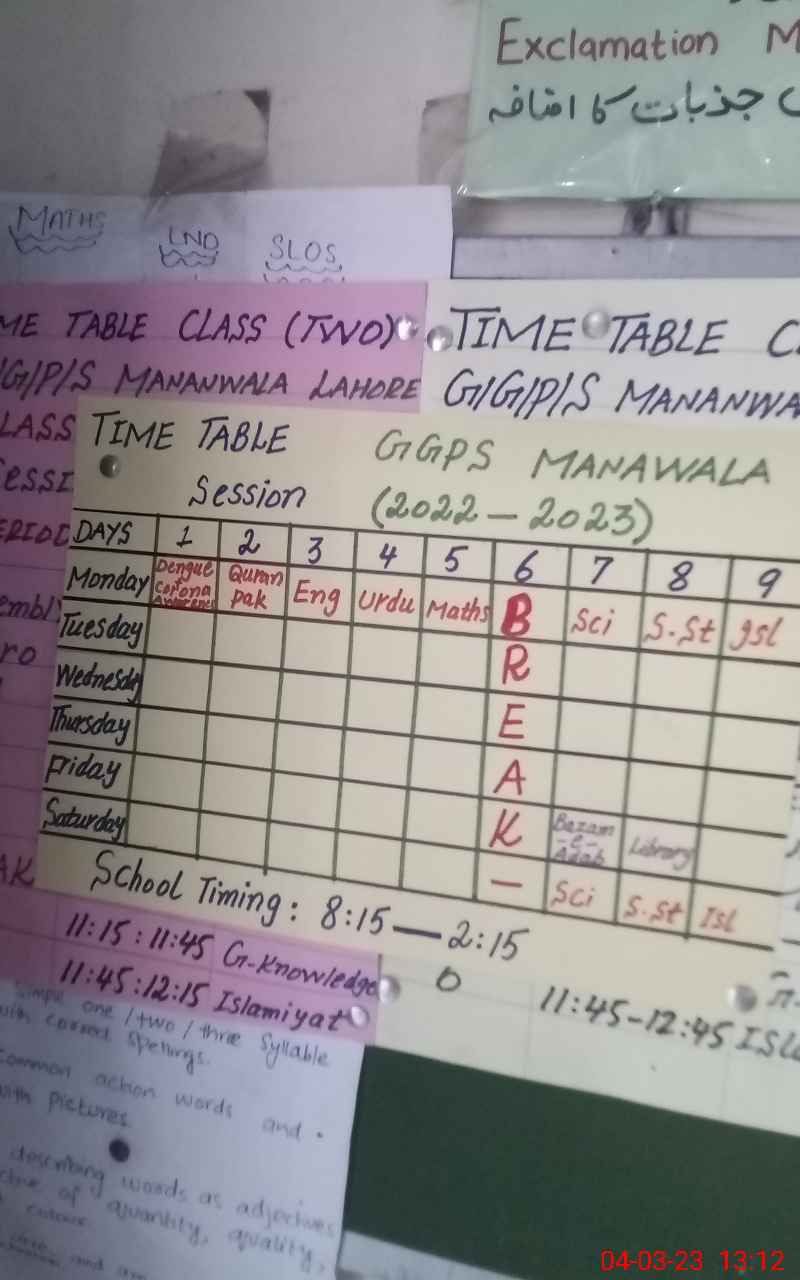 Exclamation M
جذبات کا اضافہ
MATHS
LND
SLOS
ME TABLE CLASS (TWO)
G/P/S MANANWALA LAHORE
LASS
TIME TABLE C
G/G/P/S MANANWA
TIME TABLE GGPS MANAWALA
Session (2022 — 2023)
DAYS 1 2 3 4 5 6 7 8 9
Monday Dengue + Corona Awareness Quran Pak Eng Urdu Maths B Sci S.St Isl
Tuesday R
Wednesday E
Thursday A
Friday K Bazam -e- Adab Library
Saturday — Sci S.St Isl
School Timing: 8:15 — 2:15
11:15 : 11:45 G-Knowledge
11:45 : 12:15 Islamiyat
11:45-12:45 ISL
one / two / three Syllable
with correct spellings.
Common action words and
with pictures
describing words as adjectives
of quantity, quality,
colour
04-03-23 13:12